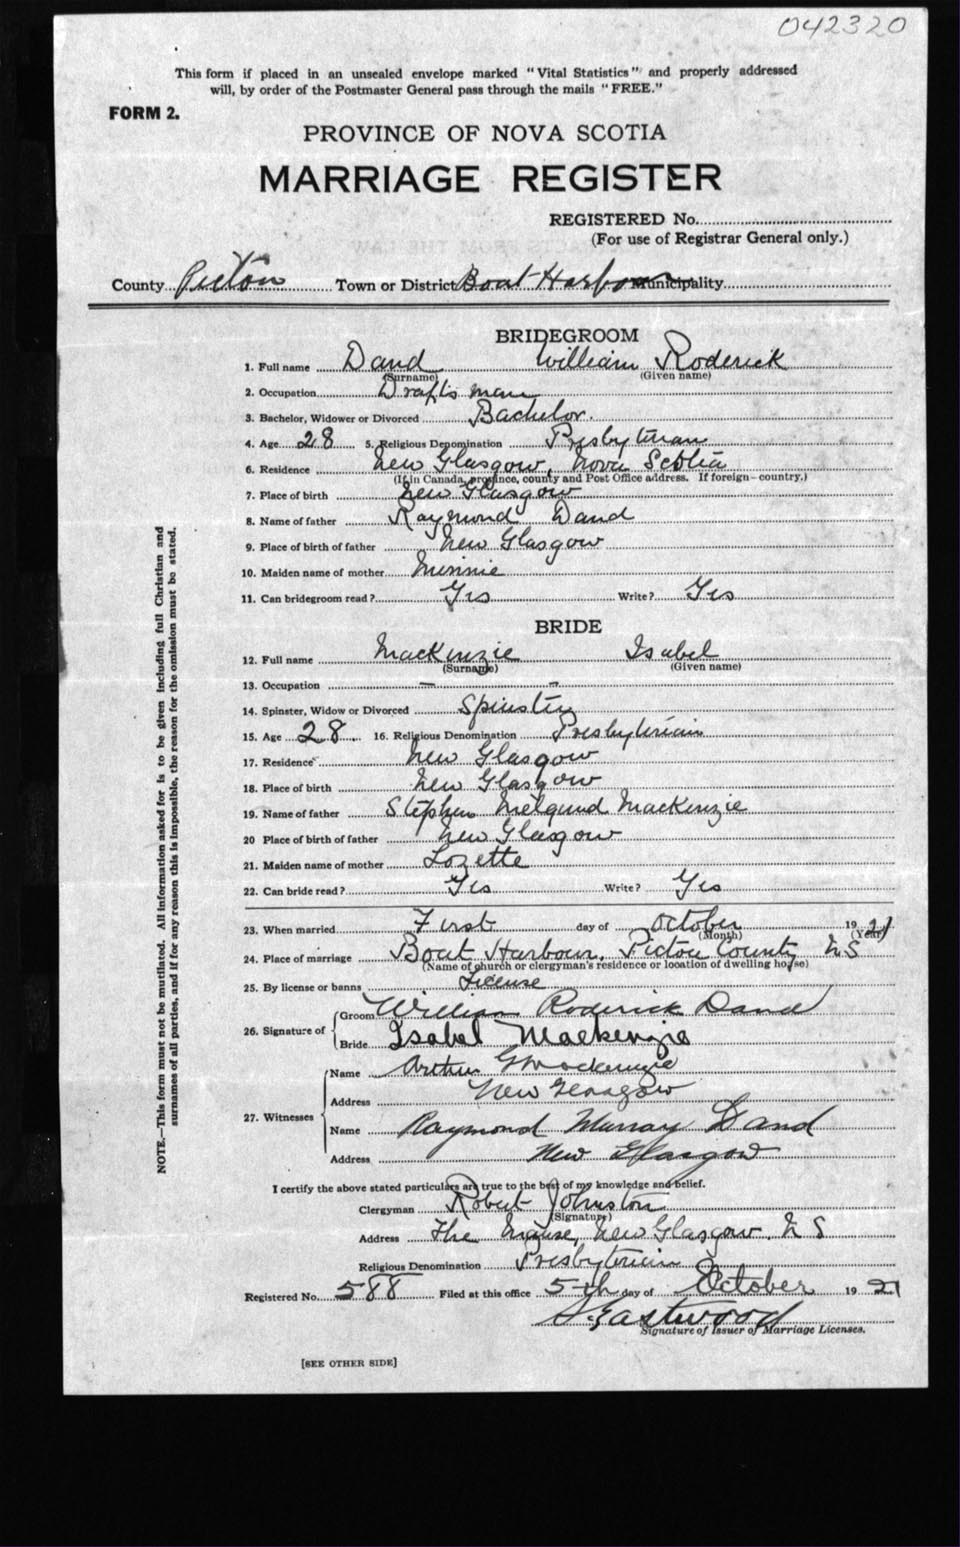 042320
This form if placed in an unsealed envelope marked "Vital Statistics" and properly addressed
will, by order of the Postmaster General pass through the mails "FREE."
FORM 2.
PROVINCE OF NOVA SCOTIA
MARRIAGE REGISTER
REGISTERED No.
(For use of Registrar General only.)
County Pictou Town or District Boat Harbour Municipality
BRIDEGROOM
1. Full name Dand William Roderick
(Surname) (Given name)
2. Occupation Draftsman
3. Bachelor, Widower or Divorced Bachelor.
4. Age 28 5. Religious Denomination Presbyterian
6. Residence New Glasgow, Nova Scotia
(If in Canada, province, county and Post Office address. If foreign—country.)
7. Place of birth New Glasgow
8. Name of father Raymond Dand
9. Place of birth of father New Glasgow
10. Maiden name of mother Minnie
11. Can bridegroom read? Yes Write? Yes
BRIDE
12. Full name MacKenzie Isabel
(Surname) (Given name)
13. Occupation — —
14. Spinster, Widow or Divorced Spinster
15. Age 28. 16. Religious Denomination Presbyterian
17. Residence New Glasgow
18. Place of birth New Glasgow
19. Name of father Stephen MacKenzie
20 Place of birth of father New Glasgow
21. Maiden name of mother Lozette
22. Can bride read? Yes Write? Yes
23. When married First day of October 1921
(Month) (Year)
24. Place of marriage Boat Harbour, Pictou County N S
(Name of church or clergyman's residence or location of dwelling house)
25. By license or banns License
26. Signature of Groom William Roderick Dand
Bride Isabel Mackenzie
27. Witnesses Name Arthur G Mackenzie
Address New Glasgow
Name Raymond Murray Dand
Address New Glasgow
I certify the above stated particulars are true to the best of my knowledge and belief.
Clergyman Robert Johnston
(Signature)
Address The Manse, New Glasgow. N S
Religious Denomination Presbyterian
Registered No. 588 Filed at this office 5th day of October 1921
Eastwood
Signature of Issuer of Marriage Licenses.
[SEE OTHER SIDE]
NOTE.—This form must not be mutilated. All information asked for is to be given including full Christian and
surnames of all parties, and if for any reason this is impossible, the reason for the omission must be stated.